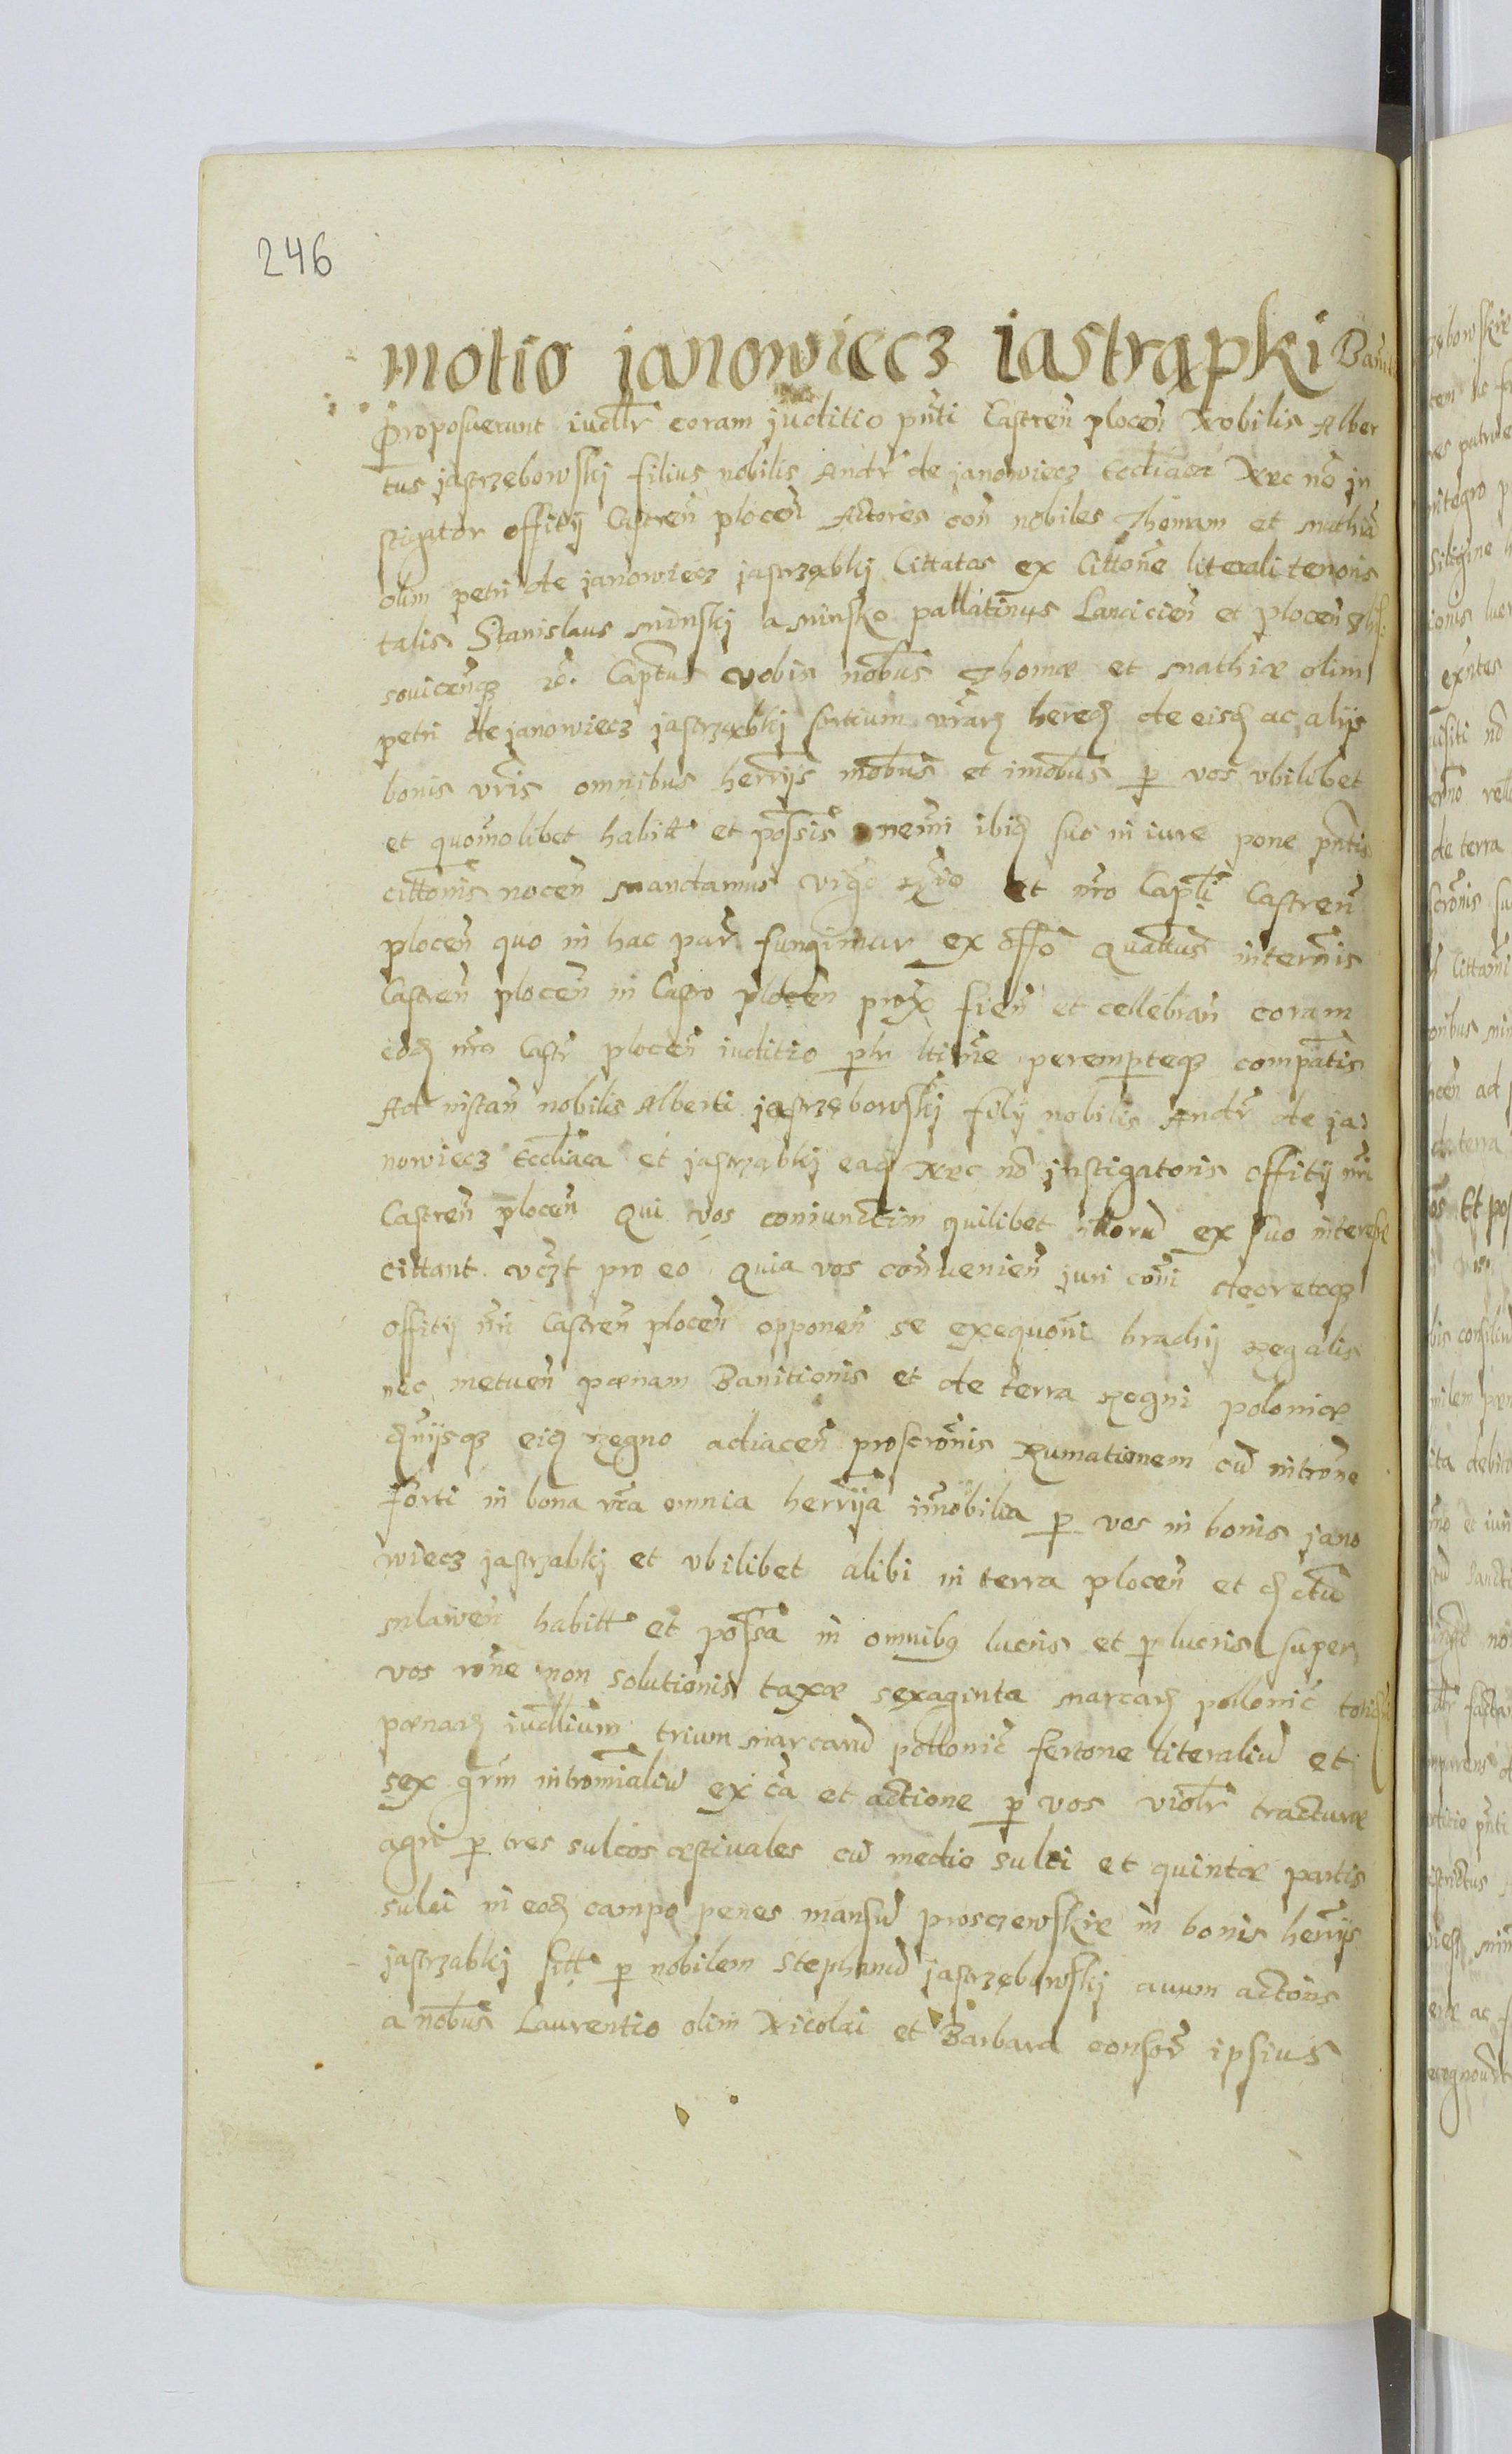 246
motio janowiecz iastrąpki Bani
Proposuerunt iudlr coram juditio pñti Castreñ ploceñ Nobilis Alber
tus jastrzębowskj filius nobilis Andr de janowiecz Eccliaca Nec nõ jn
stigator offitij Castreñ ploceñ Actores coñ nobiles Thomam et Mathiã
olim petri de janowiecz jastrząbkj Cittatos ex Cittoñe literali tenoris
talis Stanislaus Minskj a Minsko pallatinus Lancicieñ et ploceñ
souiceñqz zc. Captus vobis nobus Thomæ et Mathiæ olim
petri de janowiecz jastrząbkj sortium vrarq heredq de eisdq ac alijs
bonis vris omnibus herrijs mobus et imobus p vos vbilibet
et quomolibet habitt et possis nemi ibidq suo in iure pone pñtis
cittonis noceñ Mandamus vigc Rgio et nro Capli Castreñ
ploceñ quo in hac par fungimur ex offo Quattus in terminis
Castreñ ploceñ in Castro ploceñ prox fieñ et cellebrañ coram
eodq nro Castr ploceñ iuditio plr ltime perempteqz compatis
Ad instañ nobilis Alberti jastrzębowskj filij nobilis Andr de ja
nowiecz Eccliaca et jastrząbkj eadq Nec nõ jnstigatoris offitij nri
Castreñ ploceñ Qui vos coniunctim quilibet illorũ ex suo interesse
cittant vczt pro eo Quia vos conuenieñ juri coni decretoqz
offitij nri Castreñ ploceñ opponeñ se exequoni brachij Regalis
nec metueñ pœnam Banitionis et de terra Regni poloniæ
dnijsqz eidq Regno adiaceñ proscronis Rumationem cũ introne
forti in bona vra omnia herrija imobilia p vos in bonis jano
wiecz jastrzabkj et vbilibet alibi in terra ploceñ et dq ctu
Mlaweñ habitt et possa in omnibq lucris et p lucris super
vos rone non solutionis taxæ sexaginta marcarq pollonic
pœnarq iudlium trium marcarũ pollonic fertone literaliũ et
sex grm intromialiũ ex ca et actione p vos violr tracturæ
agri p tres sulcos æstiuales cũ medio sulci et quintæ partis
sulci in eodq campo penes mansũ prosczewskie in bonis herrijs
jastrzabkj sitt p nobilem Stephanũ jastrzębowskj auum actoris
a nobus Laurentio olim Nicolai et Barbara consor ipsius